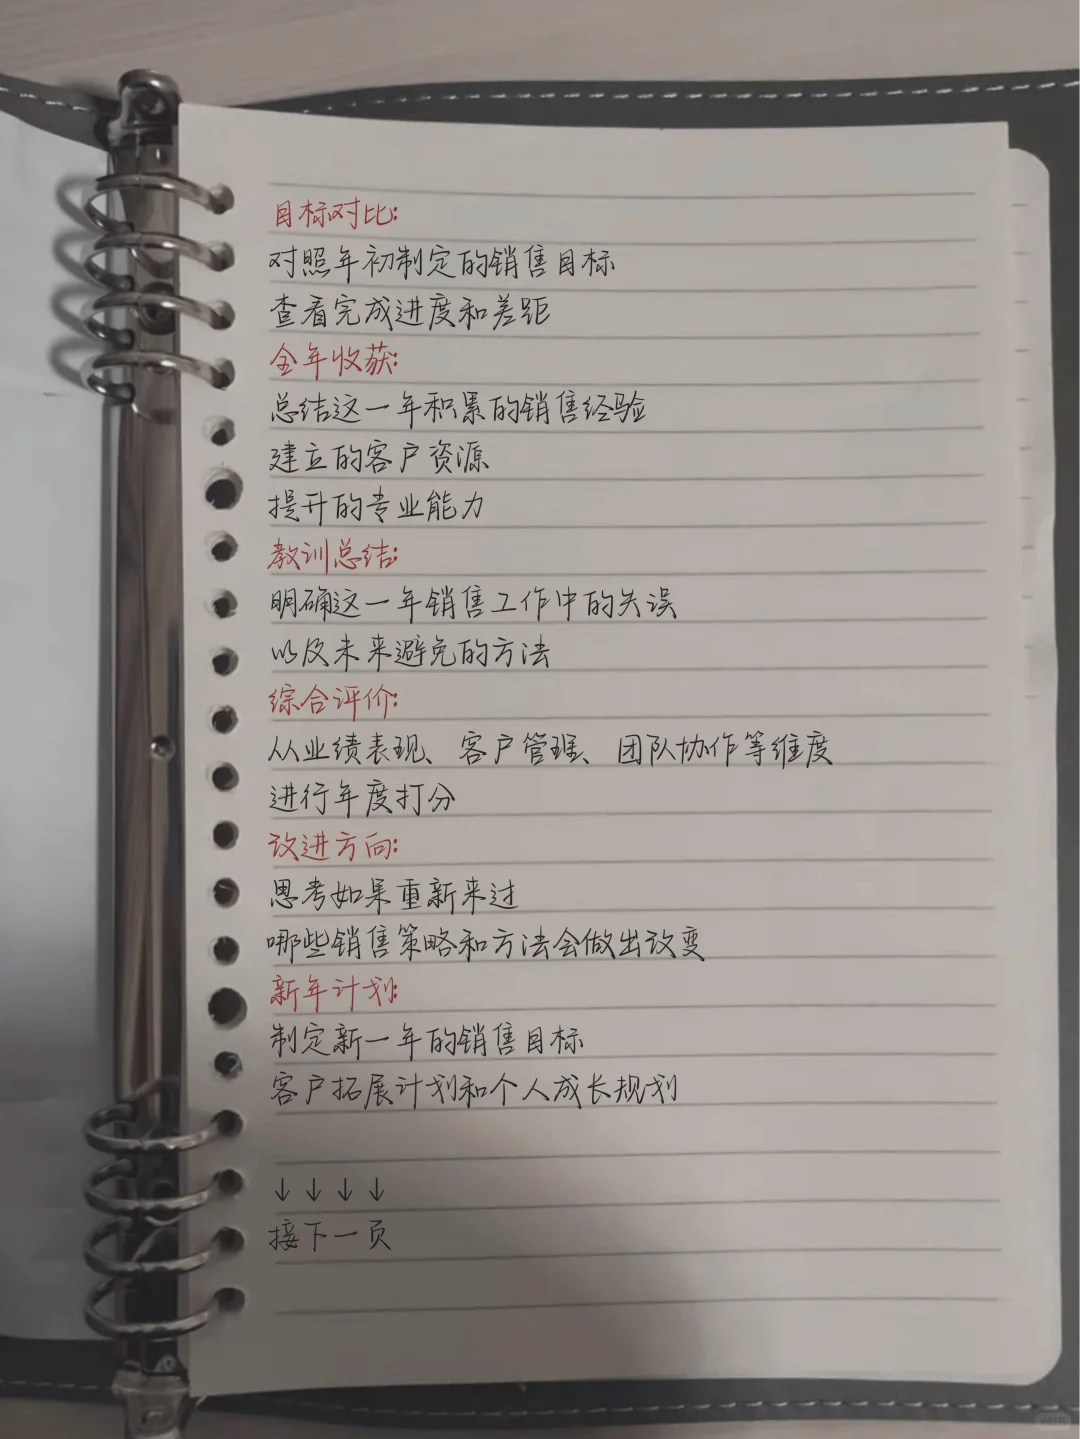 目标对比:
对照年初制定的销售目标
查看完成进度和差距
全年收获:
总结这一年积累的销售经验
建立的客户资源
提升的专业能力
教训总结:
明确这一年销售工作中的失误
以及未来避免的方法
综合评价:
从业绩表现、客户管理、团队协作等维度
进行年度打分
改进方向:
思考如果重新来过
哪些销售策略和方法会做出改变
新年计划:
制定新一年的销售目标
客户拓展计划和个人成长规划
↓↓↓↓
接下一页